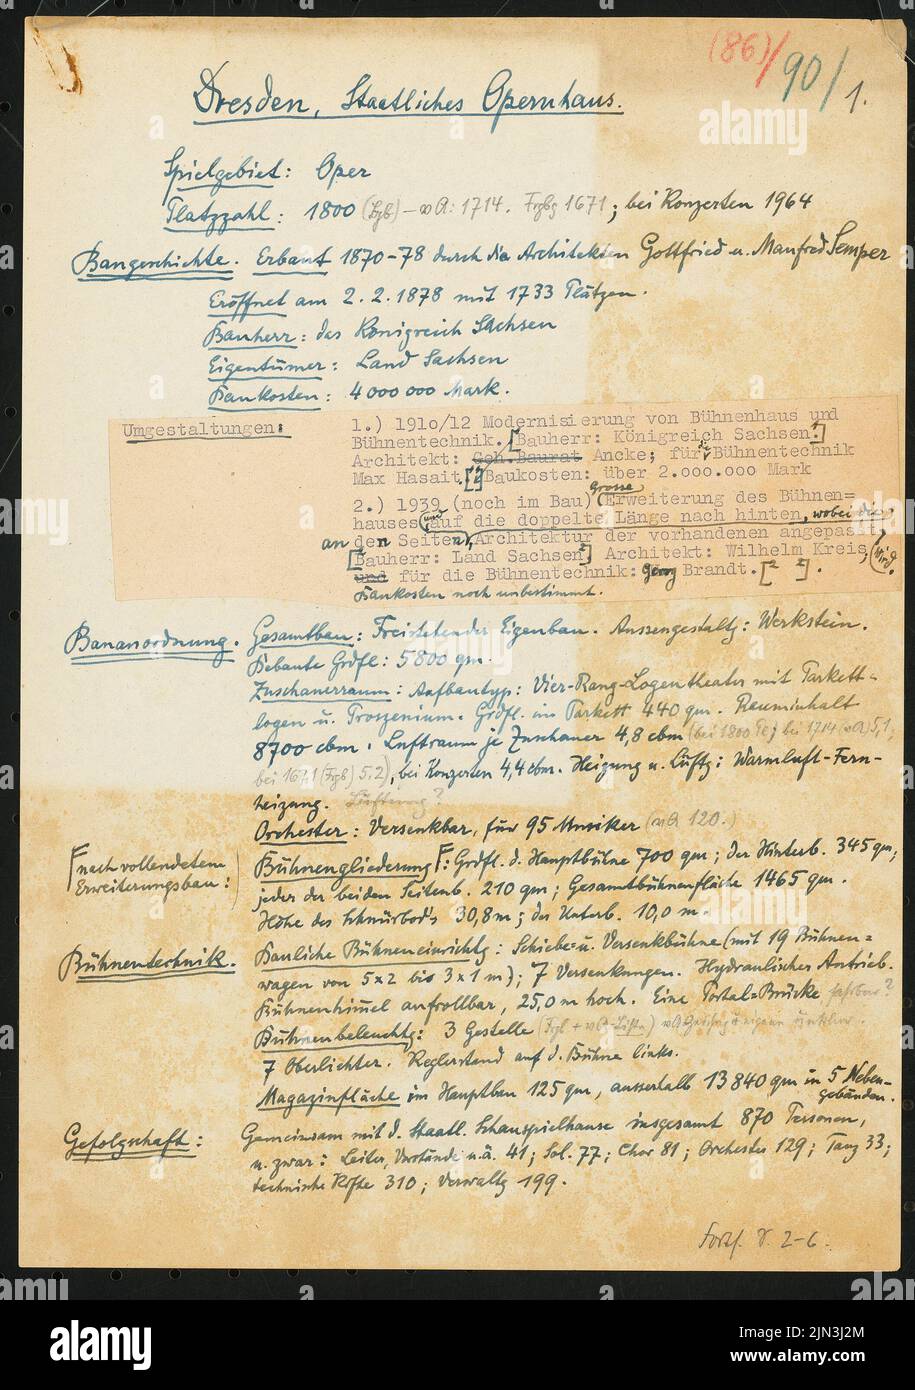 (86)/90/1.
Dresden, Staatliches Opernhaus.
Spielgebiet: Oper
Platzzahl: 1800 (Lgb) – v A: 1714. Frgbg 1671; bei Konzerten 1964
Baugeschichte. Erbaut 1870–78 durch die Architekten Gottfried u. Manfred Semper
Eröffnet am 2.2.1878 mit 1733 Plätzen.
Bauherr: das Königreich Sachsen
Eigentümer: Land Sachsen
Baukosten: 4 000 000 Mark.
Umgestaltungen: 1.) 191o/12 Modernisierung von Bühnenhaus und
Bühnentechnik. [Bauherr: Königreich Sachsen.]
Architekt: Geh.Baurat Ancke; für die Bühnentechnik
Max Hasait. [] Baukosten: über 2.000.000 Mark
2.) 1939 (noch im Bau) Grosse Erweiterung des Bühnen=
hauses und auf die doppelte Länge nach hinten, wobei die
an den Seiten, Architektur der vorhandenen angepasst
[Bauherr: Land Sachsen] Architekt: Wilhelm Kreis; wird.
und für die Bühnentechnik: Georg Brandt. [2 2].
Baukosten noch unbestimmt.
Bauanordnung. Gesamtbau: Freistehender Eigenbau. Aussengestaltg: Werkstein.
Bebaute Grdfl: 5800 qm.
Zuschauerraum: Aufbautyp: Vier-Rang-Logentheater mit Parkett-
logen u. Proszenium. Grdfl. im Parkett 440 qm. Rauminhalt
8700 cbm. Luftraum je Zuschauer 4,8 cbm (bei 1800 Pl; bei 1714 (vA) 5,1;
bei 1671 (Frgb) 5,2), bei Konzerten 4,4 cbm. Heizung u. Lüftg: Warmluft-Fern-
heizung. Lüftung?
Orchester: Versenkbar, für 95 Musiker (vA 120.)
[nach vollendetem
Erweiterungsbau:)
Bühnengliederung: Grdfl. d. Hauptbühne 700 qm; der Hinterb. 345 qm;
jeder der beiden Seitenb. 210 qm; Gesamtbühnenfläche 1465 qm.
Höhe des Schnürbod's 30,8 m; der Unterb. 10,0 m.
Bühnentechnik. Bauliche Bühneneinrichtg: Schiebe- u. Versenkbühne (mit 19 Bühnen=
wagen von 5x2 bis 3x1 m); 7 Versenkungen. Hydraulischer Antrieb.
Bühnenhimmel aufrollbar, 25,0 m hoch. Eine Portal=Brücke fahrbar?
Bühnenbeleuchtg: 3 Gestelle
7 Oberlichter. Reglerstand auf d. Bühne links.
Magazinfläche im Hauptbau 125 qm, ausserhalb 13840 qm in 5 Neben-
gebäuden.
Gefolgschaft: Gemeinsam mit d. Staatl. Schauspielhause insgesamt 870 Personen,
u. zwar: Leiter, Vorstände u.ä. 41; Sol. 77; Chor 81; Orchester 129; Tanz 33;
technische Kräfte 310; Verwaltg 199.
Forts. S. 2–6.
alamy
Image ID: 2JN3J2M
www.alamy.com